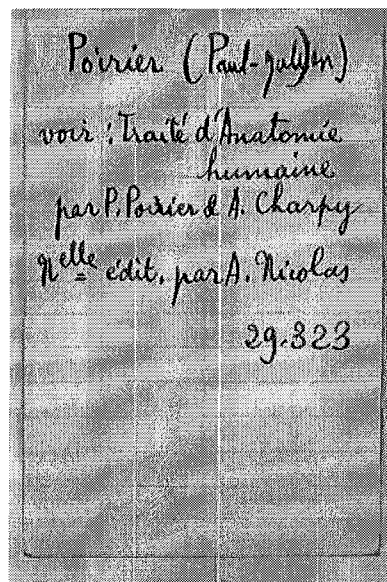 Poirier (Paul-Julien)
voir : Traité d'Anatomie
humaine
par P. Poirier & A. Charpy
Nelle édit. par A. Nicolas
29.323